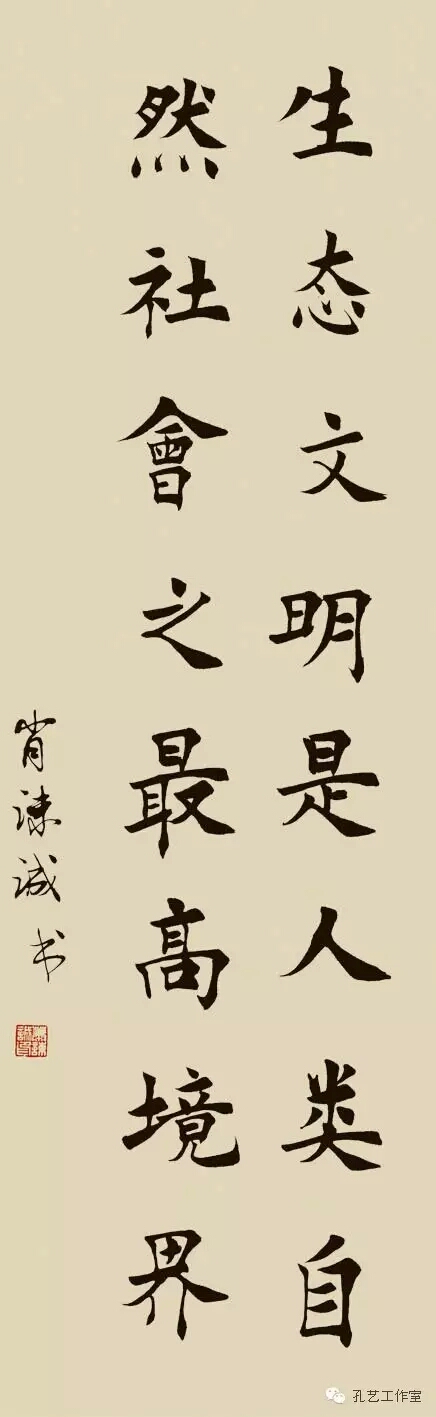 生态文明是人类自
然社會之最高境界
肖谏诚书
孔艺工作室